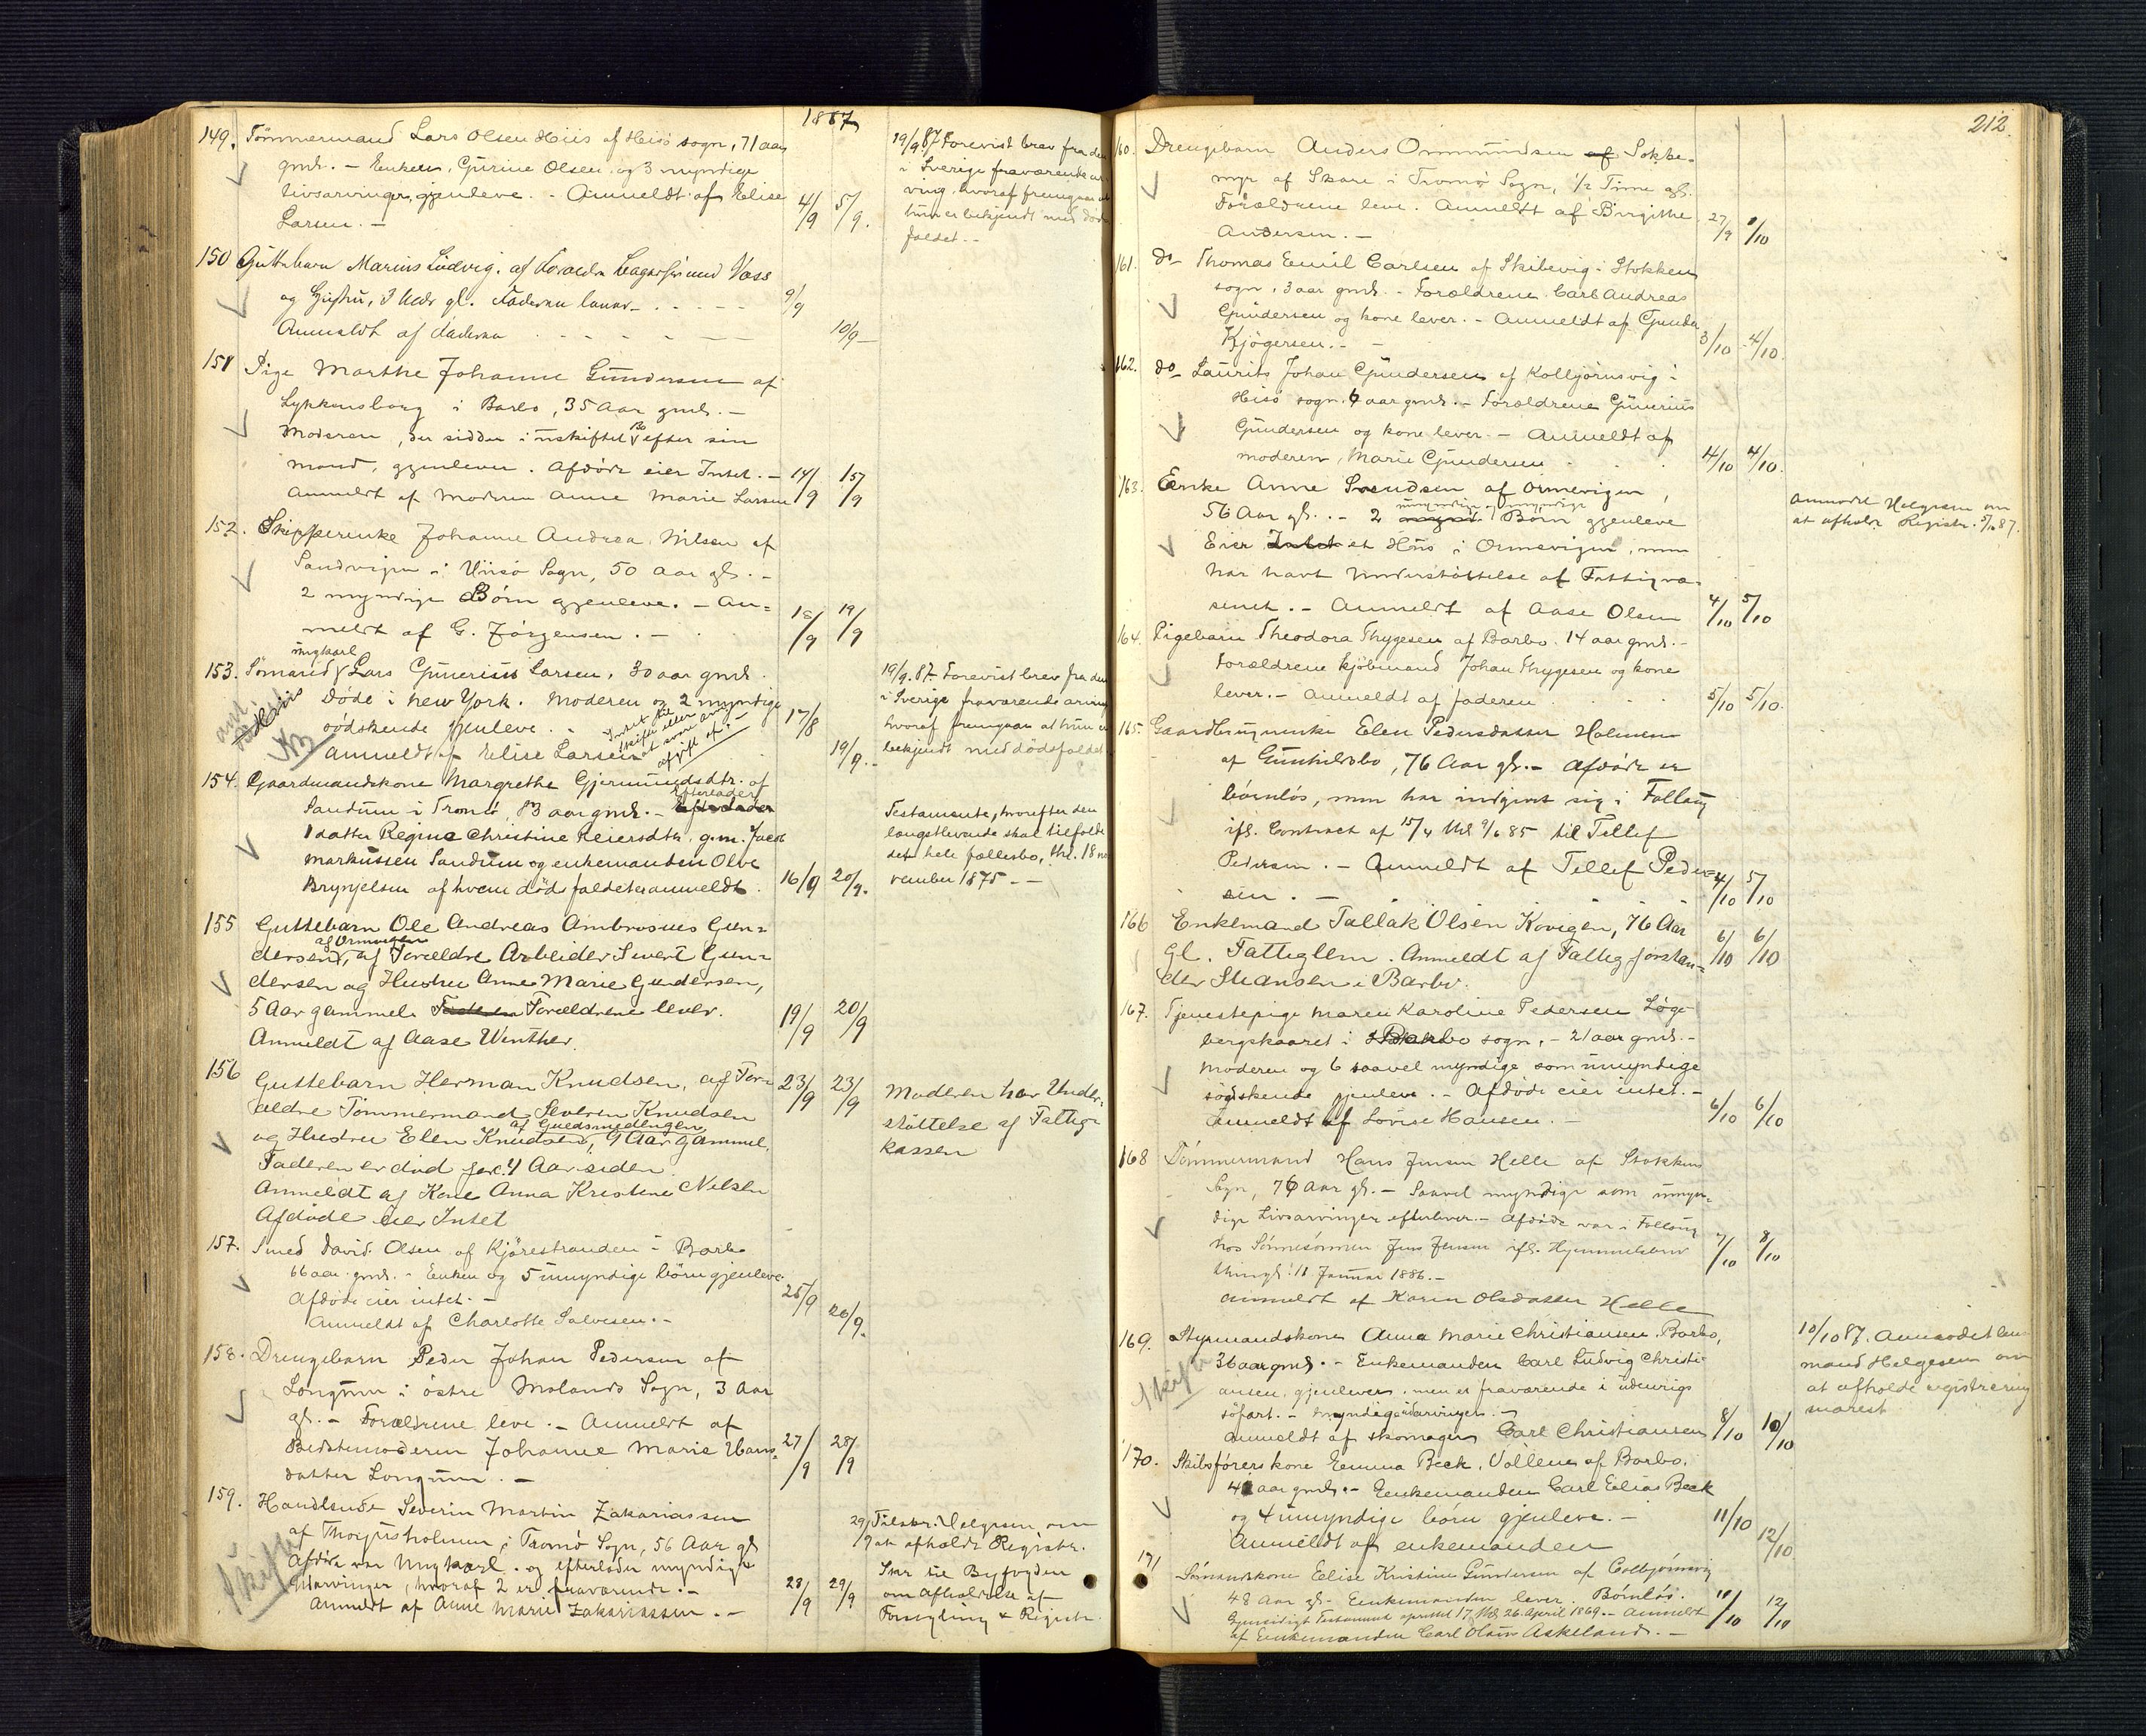 1887
149. Tömmermand Lars Olsen Hiis af Hisö sogn, 71 aar
gml. - Enken, Gurine Olsen og 3 myndige
livsarvinger gjenleve. - Anmeldt af Elise
Larsen. - 4/9 5/9.
19/9 87 Forevist brev fra den
i Sverige fraværende ar-
ving, hvoraf fremgaar at
hun er bekjendt med döds
faldet. -
150 Guttebarn Marius Ludvig. af Forældre
og Hustru, 3 Uger gl. 9/9
Anmeldt af Faderen 10/9
151 Pige Marthe Johanne Gundersen af
Lykkensborg i Barbo, 35 Aar gml. -
Moderen, der sidder i uskiftet Bo efter sin
mand, gjenlever. Afdöde eier Intet. - 14/9 15/9
Anmeldt af Moderen Anne Marie Larsen
152. Skipperenke Johanne Andrea Nilsen af
Sandvigen i Hisö Sogn, 50 Aar gl. -
2 myndige Börn gjenleve. - An=
meldt af G. Jörgensen. - 18/9 19/9
ungkarl
153. Sömand Lars Gunerius Larsen, 30 aar gml.
Döde i New York. Moderen og 2 myndige
södskende gjenleve. 17/8
Anmeldt af Elise Larsen 19/9. -
19/9. 87. Forevist brev fra den
i Sverige fraværende arving
hvoraf fremgaar at hun er
bekjendt med dödsfaldet
154. Gaardmandskone Margrethe Gjermundsdtr. af
Sandum i Tromö, 83 aar gml. - Efterlader
1 datter Regine Christine Reiersdtr. g.m. Jacob
Markussen Sandum og enkemanden Olve
Brynjelsen af hvem dödsfaldet er anmeldt. 16/9 20/9.
Testamente, hvorefter den
længstlevende skal tilfalde
det hele fællesbo, thl. 18 no
vember 1875. -
155 Guttebarn Ole Andreas Ambrosius Gun=
af Ormevigen
dersen, af Forældre Arbeider Sivert Gun=
dersen og Hustru Anne Marie Gundersen,
5 Aar gammel. Forældrene lever. 19/9 20/9
Anmeldt af Aase Winther.
156 Guttebarn Herman Knudsen, af For= 23/9 23/9
ældre Tömmermand Severin Knudsen
og Hustru Elen Knudsen, 9 Aar gammel.
Faderen er död for 4 Aar siden.
Anmeldt af Kone Anna Kristine Nielsen
Afdöde eier Intet
Moderen har Under=
stöttelse af Fattig=
kassen
157. Smed David Olsen af Kjörestranden i Barbo
66 aar gml. - Enken og 5 umyndige börn gjenleve.
Afdöde eier intet. - 25/9
Anmeldt af Charlotte Salvesen. - 26/9.
158. Drengebarn Peder Johan Pedersen af
Longum i östre Molands Sogn, 3 Aar
gl. - Forældrene leve. - Anmeldt af
Bedstemoderen Johanne Marie Hans- 27/9 28/9
datter Longum. -
159. Handlende Severin Martin Zakariassen
af i Tromö Sogn, 56 Aar gl
Afdöde var Ungkarl. og efterlader myndige
Udarvinger, hvoraf 2 er fraværende. - 28/9 29/9
Anmeldt af Anne Marie Zakariassen. -
Skifte
29/9 Helgesen om
at afholde Registr.
Skr til Byfogden
om Afholdelse af
Forsegling & Registr.
212.
160. Drengebarn Anders Ommundsen Sokke-
myr af Skare i Tromö Sogn, 1/2 Time gl.
Forældrene leve. Anmeldt af Birgithe
Andersen. - 27/9 1/10
161. do Thomas Emil Carlsen af Skibevig i Stokken
sogn, 3 aar gml. - Forældrene Carl Andreas
Gundersen og kone lever. - Anmeldt af Gunda
Kjögersen. - 3/10 4/10.
162. do Laurits Johan Gundersen af Kolbjörnsvig i
Hisö sogn. 6 aar gml. - Forældrene Gunerius
Gundersen og kone lever. - Anmeldt af
moderen, Marie Gundersen 4/10 4/10.
163. Enke Anne Svendsen af Ormevigen,
56 Aar gl. - 2 umyndige og myndige Börn gjenleve
Eier Intet et Hus i Ormevigen, men
har havt Understöttelse af Fattigvæ-
senet. - Anmeldt af Aase Olsen 4/10 5/10
Anmodet Helgesen om
at afholde Registr. 5/10 87.
164. Pigebarn Theodora Thygesen af Barbo. 14 aar gml. -
Forældrene Kjöbmand Johan Thygesen og kone
lever. - Anmeldt af faderen 5/10 5/10.
165. Gaardbrugerenke Elen Pedersdatter Holmen
af Gunhildsbo, 76 Aar gl. - Afdöde er
barnlös, men har indgivet sig i Follaug
ifl. Contract af 15/4 thl 9/6 85 til Tellef
Pedersen. - Anmeldt af Tellef Peder=
sen. - 4/10 5/10
166 Enkemand Tallak Olsen Kovigen, 76 Aar
gl. Fattiglem. Anmeldt af Fattigforstan=
der Stiansen i Barbo. 6/10 6/10
167. Tjenestepige Maren Karoline Pedersen Löge
bergskaaret i Barbo sogn, - 21 aar gml. -
Moderen og 6 saavel myndige som umyndige
södskende gjenleve. - Afdöde eier intet. -
Anmeldt af Lovise Hansen. - 6/10 6/10
168 Tömmermand Hans Jensen Helle af Stokken
Sogn, 76 Aar gl. - Saavel myndige som umyn-
dige Livsarvinger efterlever. - Afdöde var i Follaug
hos Sönnesönnen Jens Jensen ifl. Hjemmelsbrev
thingl. 18 Januar 1886. - 7/10 8/10
Anmeldt af Karen Olsdatter Helle
169. Styrmandskone Anna Marie Christiansen. Barbo,
36 aar gml. - Enkemanden Carl Ludvig Christi-
ansen, gjenlever, men er fraværende i udenrigs
söfart. - Myndige udarvinger. -
Anmeldt af skomager Carl Christiansen 8/10 10/10
Skifte
10/10 87. Anmodet len-
mand Helgesen om
at afholde registrering
snarest
170. Skibsförers kone Emma Beck, Vollene af Barbo.
aar gml. - Enkemanden Carl Elias Beck
og 4 umyndige börn gjenleve. - 11/10
Anmeldt af enkemanden 12/10.
171 Sömandskone Elise Kristine Gundersen af Colbjörnsvig
48 Aar gl. - Enkemanden lever. Börnlös. 11/10 12/10
Gjensidigt Testament oprettet 17, thl 26 April 1869. - Anmeldt
af Enkemanden Carl Olsen Askeland. -